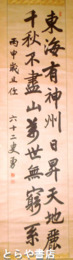 東海有神州日昇天地麗
千秋不盡山萬世無窮系
丙申歳一
六十二叟
とらや書店